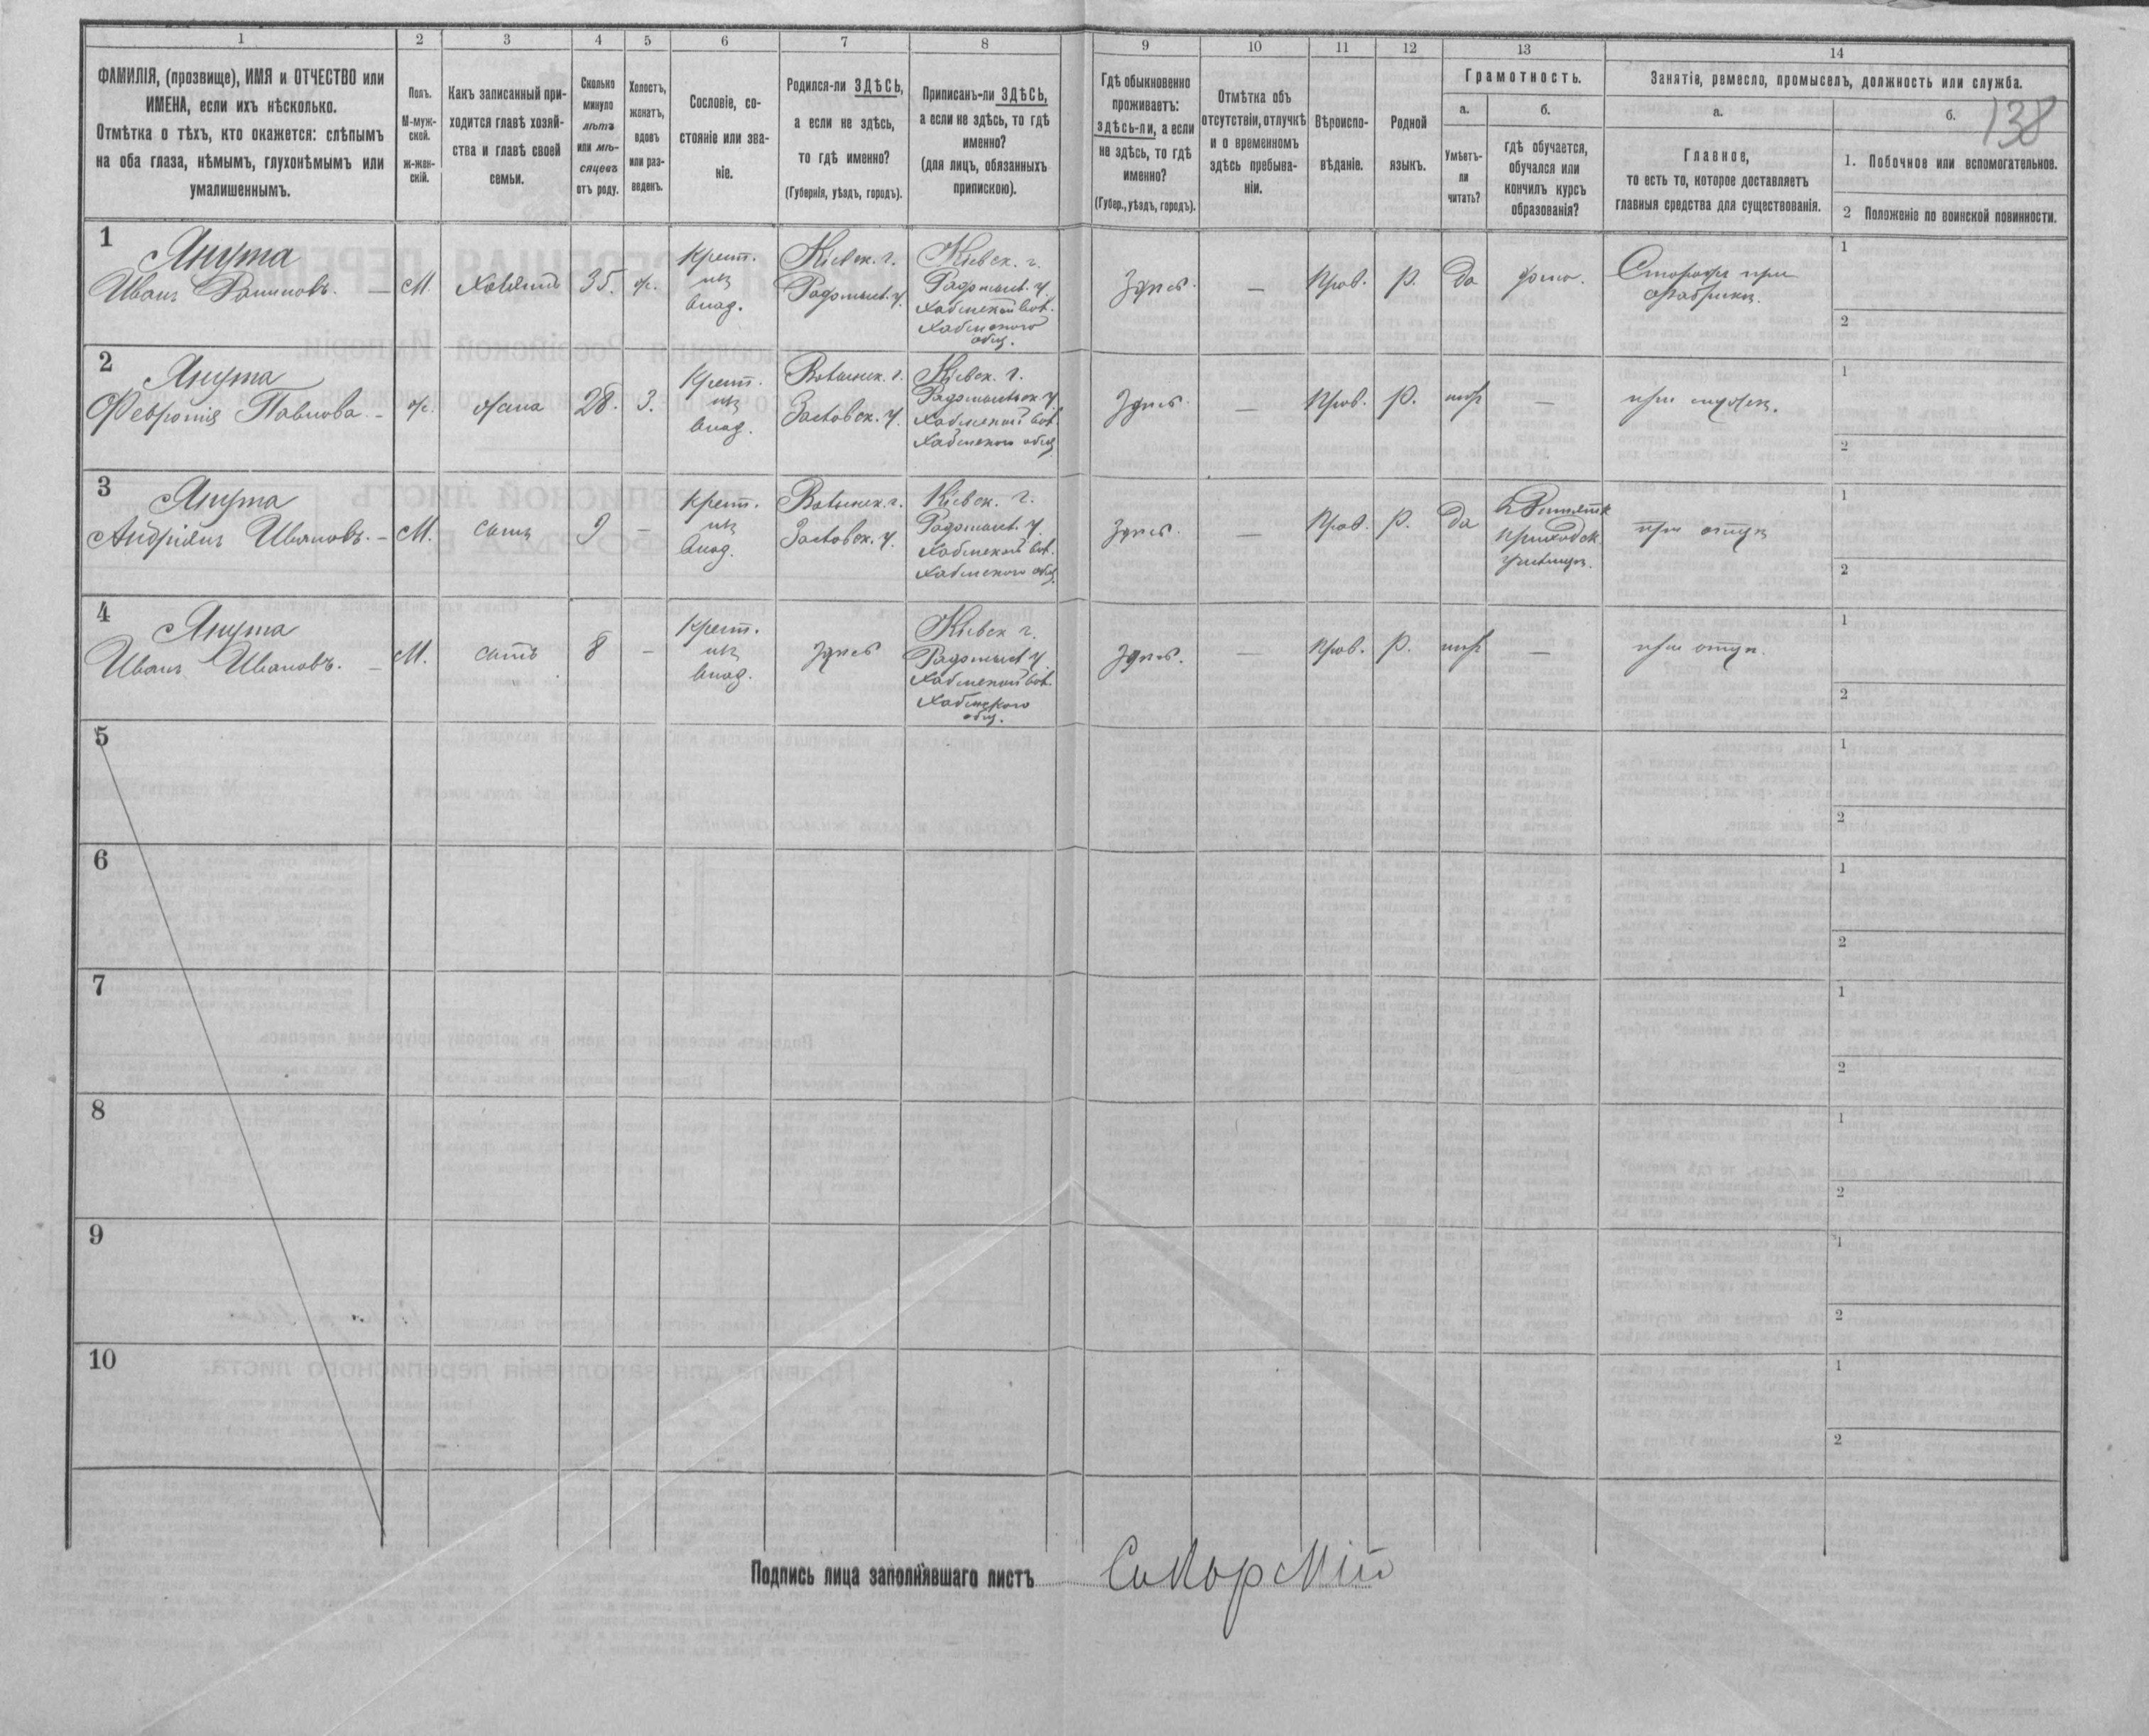 1
2
3
4
5
6
7
8
9
10
11
12
13
14
ФАМИЛІЯ, (прозвище), ИМЯ и ОТЧЕСТВО или
ИМЕНА, если ихъ нѣсколько.
Отмѣтка о тѣхъ, кто окажется: слѣпымъ
на оба глаза, нѣмымъ, глухонѣмымъ или
умалишеннымъ.
Полъ.
М-муж-
ской.
ж-жен-
скій.
Какъ записанный при-
ходится главѣ хозяй-
ства и главѣ своей
семьи.
Сколько
минуло
лѣтъ
или мѣ-
сяцевъ
отъ роду.
Холостъ,
женатъ,
вдовъ
или раз-
веденъ.
Сословіе, со-
стояніе или зва-
ніе.
Родился-ли ЗДѢСЬ,
а если не здѣсь,
то гдѣ именно?
(Губернія, уѣздъ, городъ).
Приписанъ-ли ЗДѢСЬ,
а если не здѣсь, то гдѣ
именно?
(для лицъ, обязанныхъ
припискою).
Гдѣ обыкновенно
проживаетъ:
здѣсь-ли, а если
не здѣсь, то гдѣ
именно?
(Губер., уѣздъ, городъ).
Отмѣтка объ
отсутствіи, отлучкѣ
и о временномъ
здѣсь пребыва-
ніи.
Вѣроиспо-
вѣданіе.
Родной
языкъ.
Грамотность.
а.
Умѣетъ-
ли
читать?
б.
гдѣ обучается,
обучался или
кончилъ курсъ
образованія?
Занятіе, ремесло, промыселъ, должность или служба.
а.
Главное,
то есть то, которое доставляетъ
главныя средства для существованія.
б.
138
1. Побочное или вспомогательное.
2 Положеніе по воинской повинности.
1
Янута
Иванъ
М.
хозяинъ
35.
ж.
Крест.
изъ
влад.
Кіевск. г.
Радомысл. у.
Кіевск. г.
Радомысл. у.
Хабенской вол.
Хабенского
общ.
Здѣсь.
—
Прав.
Р.
да
дома.
Сторожъ при
фабрикѣ.
1
2
2
Янута
Февронія Павлова. -
ж.
жена
28.
З.
Крест.
изъ
влад.
Волынск. г.
Заславск. у.
Кіевск. г.
Радомысльск. у.
Хабенской вол.
Хабенского общ.
Здѣсь.
—
Прав.
Р.
нѣтъ
—
при мужѣ.
1
2
3
Янута
Андріянъ Ивановъ. -
М.
сынъ
9
-
Крест.
изъ
влад.
Волынск. г.
Заславск. у.
Кіевск. г.
Радомысл. у.
Хабенской вол.
Хабенского общ.
Здѣсь.
—
Прав.
Р.
да
приходск.
училищѣ.
при отцѣ
1
2
4
Янута
Иванъ Ивановъ. -
М.
сынъ
8
-
Крест.
изъ
влад.
здѣсь
Кіевск г.
Радомысл у.
Хабенской вол.
Хабенского
общ.
Здѣсь.
—
Прав.
Р.
нѣтъ
—
при отцѣ.
1
2
5
1
2
6
1
2
7
1
2
8
1
2
9
1
2
10
1
2
Подпись лица заполнявшаго листъ